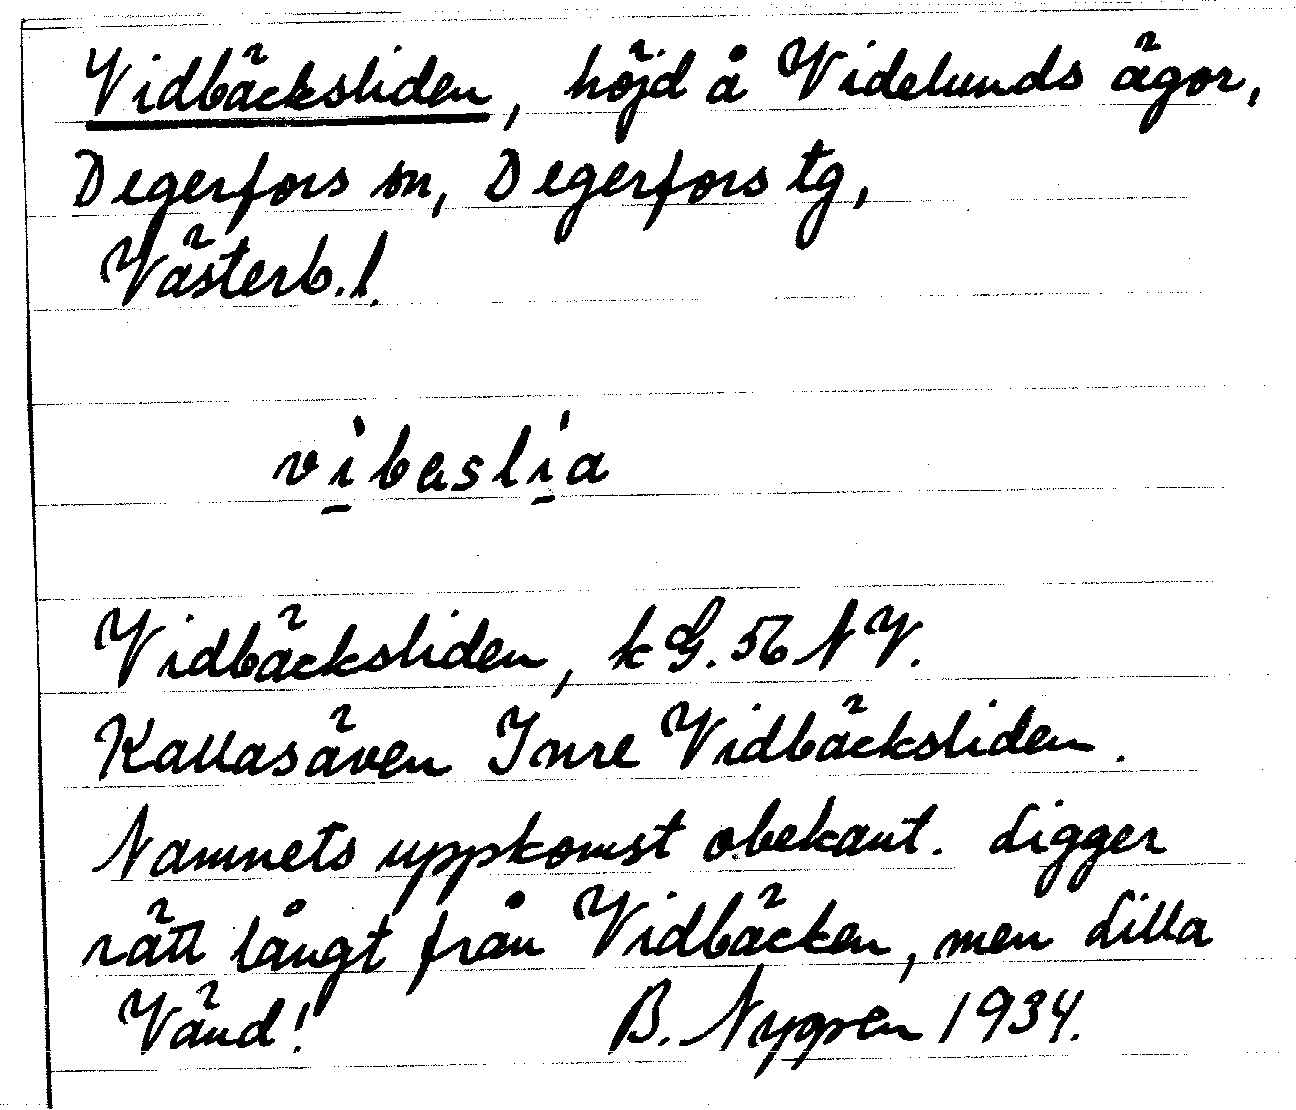 Vidbäcksliden, höjd å Videlunds ägor,
Degerfors sn, Degerfors tg,
Västerb. l.
vi̠basli̠a
Vidbäcksliden, kG. 56 NV.
Kallas även Inre Vidbäcksliden.
Namnets uppkomst obekant. Ligger
rätt långt från Vidbäcken, men Lilla
Vänd! B. Nygren 1934.